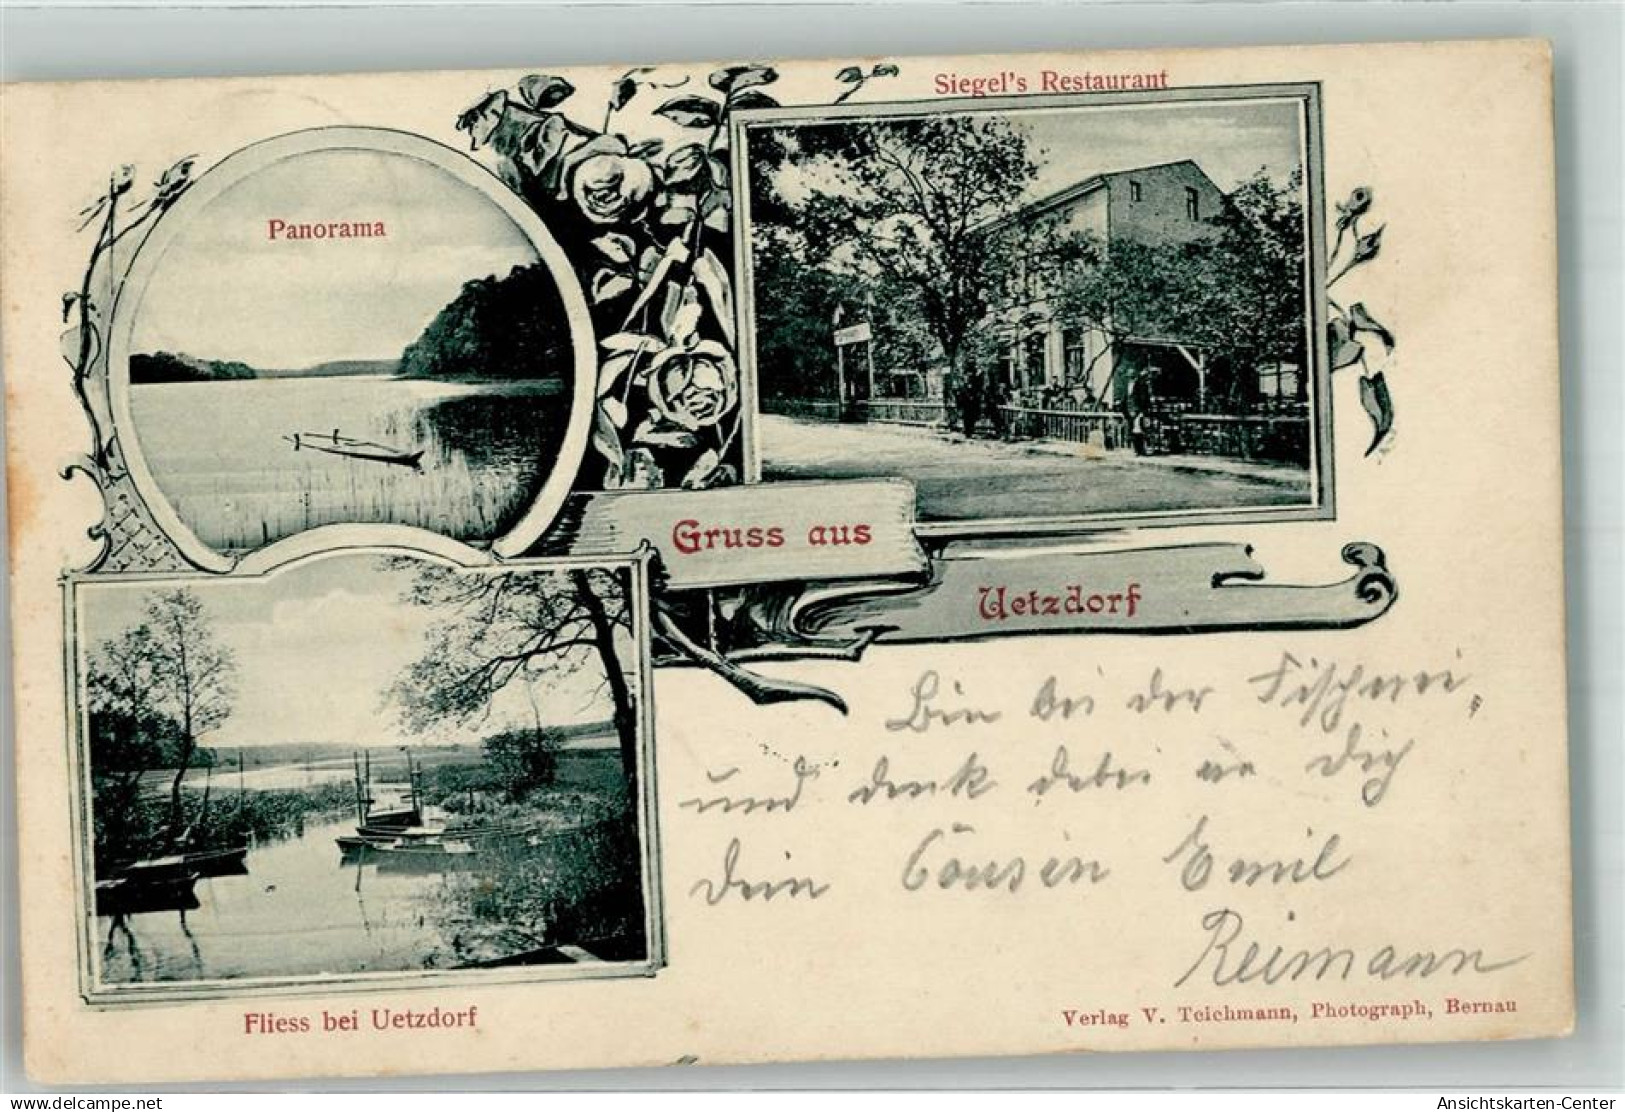 Siegel's Restaurant
Panorama
Gruss aus
Uetzdorf
Bin bei der Fischerei,
und denk dabei an Dich
Dein Cousin Emil
Reimann
Fliess bei Uetzdorf
Verlag V. Teichmann, Photograph, Bernau
www.delcampe.net
Ansichtskarten-Center